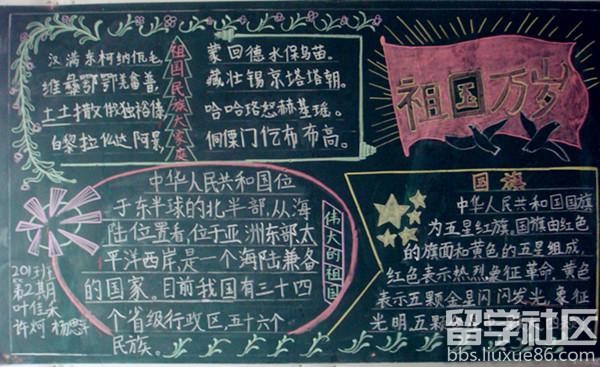 汉满东柯纳佤毛
维彝鄂鄂羌畲普
土土撒俄独裕傣
白黎拉仫达阿景
祖国民族大家庭
蒙回德水保乌苗。
藏壮锡京塔塔朝。
哈哈珞怒赫基瑶。
侗傈门仡布布高。
祖国万岁
中华人民共和国位
于东半球的北半部,从海
陆位置看,位于亚洲东部太
平洋西岸,是一个海陆兼备
的国家。目前我国有三十四
个省级行政区,五十六个
民族。
伟大的祖国
第2期
叶佳禾
许炯 杨
国旗
中华人民共和国国旗
为五星红旗。国旗由红色
的旗面和黄色的五星组成,
红色表示热烈象征革命,黄色
表示五颗金星闪闪发光,象征
光明,五颗
留学社区
bbs.liuxue86.com